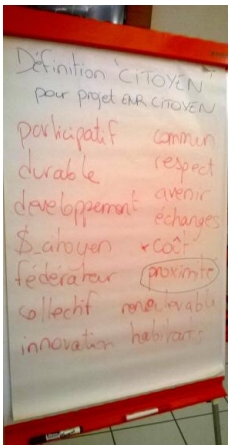 Définition "CITOYEN"
pour projet ENR CITOYEN
participatif
durable
developpement
$_citoyen
fédérateur
collectif
innovation
commun
respect
avenir
échanges
coût
proximité
renouvelable
habitants